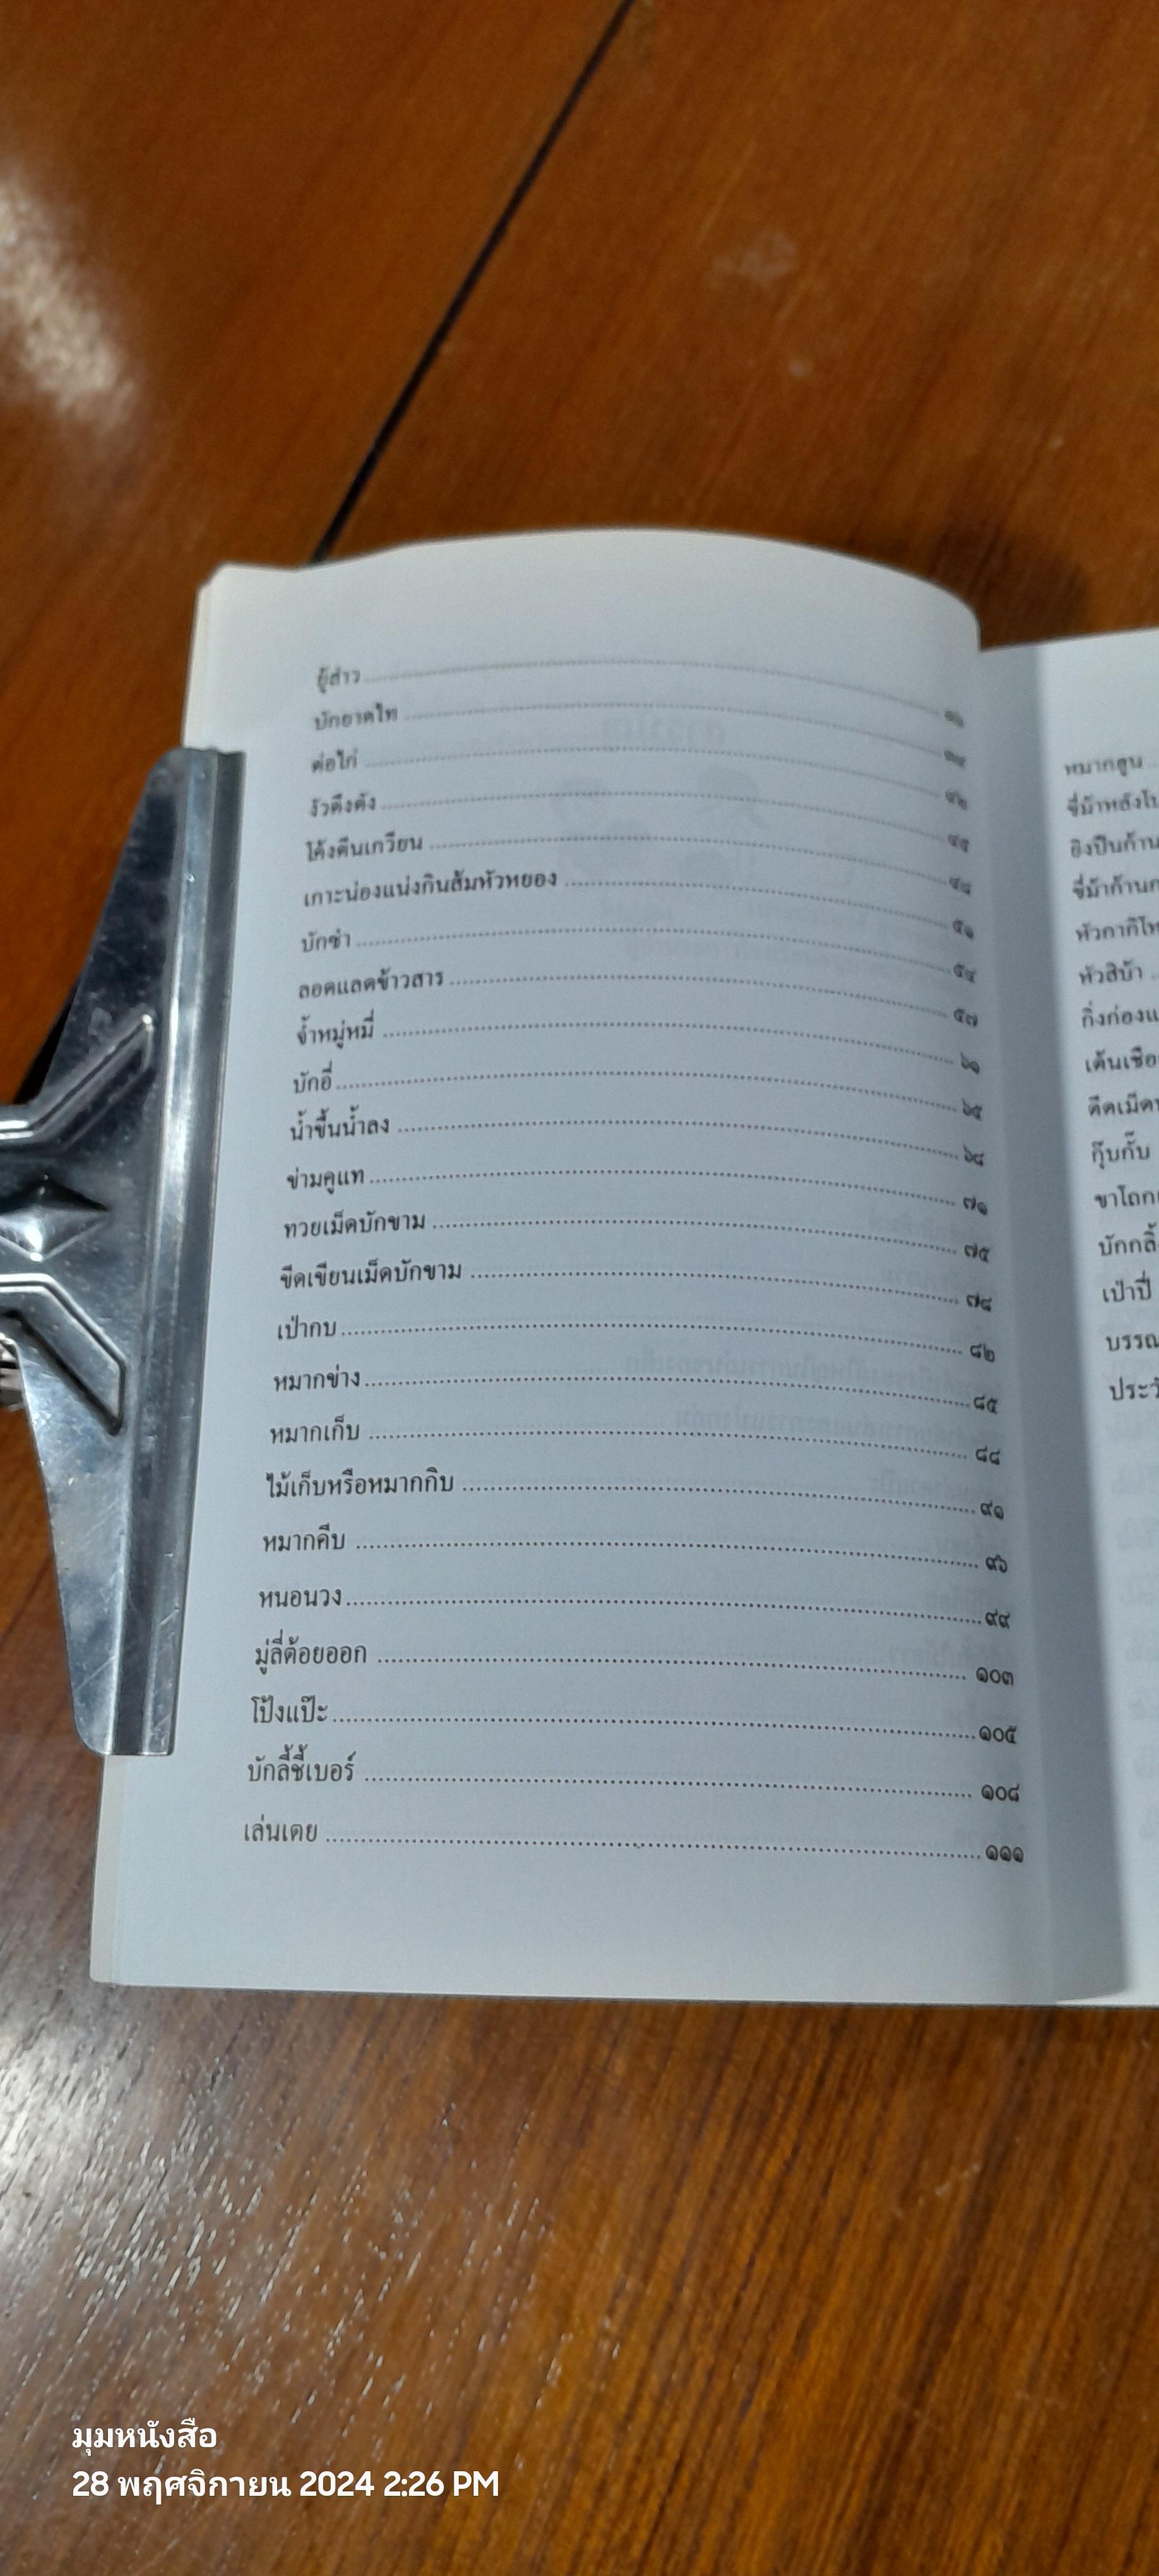 ยู้ส่าว
บักยาคไท
ต่อไก่
งัวดึงดัง ........ ๔๕
โค้งตีนเกวียน ........ ๔๘
เกาะน่องแน่งกินส้มหัวหยอง ........ ๕๑
บักซำ ........ ๕๔
ลอดแลดข้าวสาร ........ ๕๗
จ้ำหมู่หมี่ ........ ๖๑
บักอี่ ........ ๖๕
น้ำขึ้นน้ำลง ........ ๖๘
ข่ามคูแท ........ ๗๑
ทวยเม็ดบักขาม ........ ๗๕
ขีดเขียนเม็ดบักขาม ........ ๗๘
เป่ากบ ........ ๘๒
หมากข่าง ........ ๘๕
หมากเก็บ ........ ๘๘
ไม้เก็บหรือหมากกิบ ........ ๙๑
หมากคีบ ........ ๙๖
หนอนวง ........ ๙๙
มู่ลี่ต้อยออก ........ ๑๐๓
โป้งแป๊ะ ........ ๑๐๕
บักลี้ชี้เบอร์ ........ ๑๐๘
เล่นเตย ........ ๑๑๑
หมากสูน
ขี่ม้าหลังโป
อิงปืนก้าน
ขี่ม้าก้าน
หัวกากิโห
หัวสิบ้า
กิ่งก่อง
เต้นเชือ
ดีดเม็ด
กุ๊บกั๊บ
ขาโถก
บักกลิ้
เป่าปี่
บรรณ
ประวั
มุมหนังสือ
28 พฤศจิกายน 2024 2:26 PM